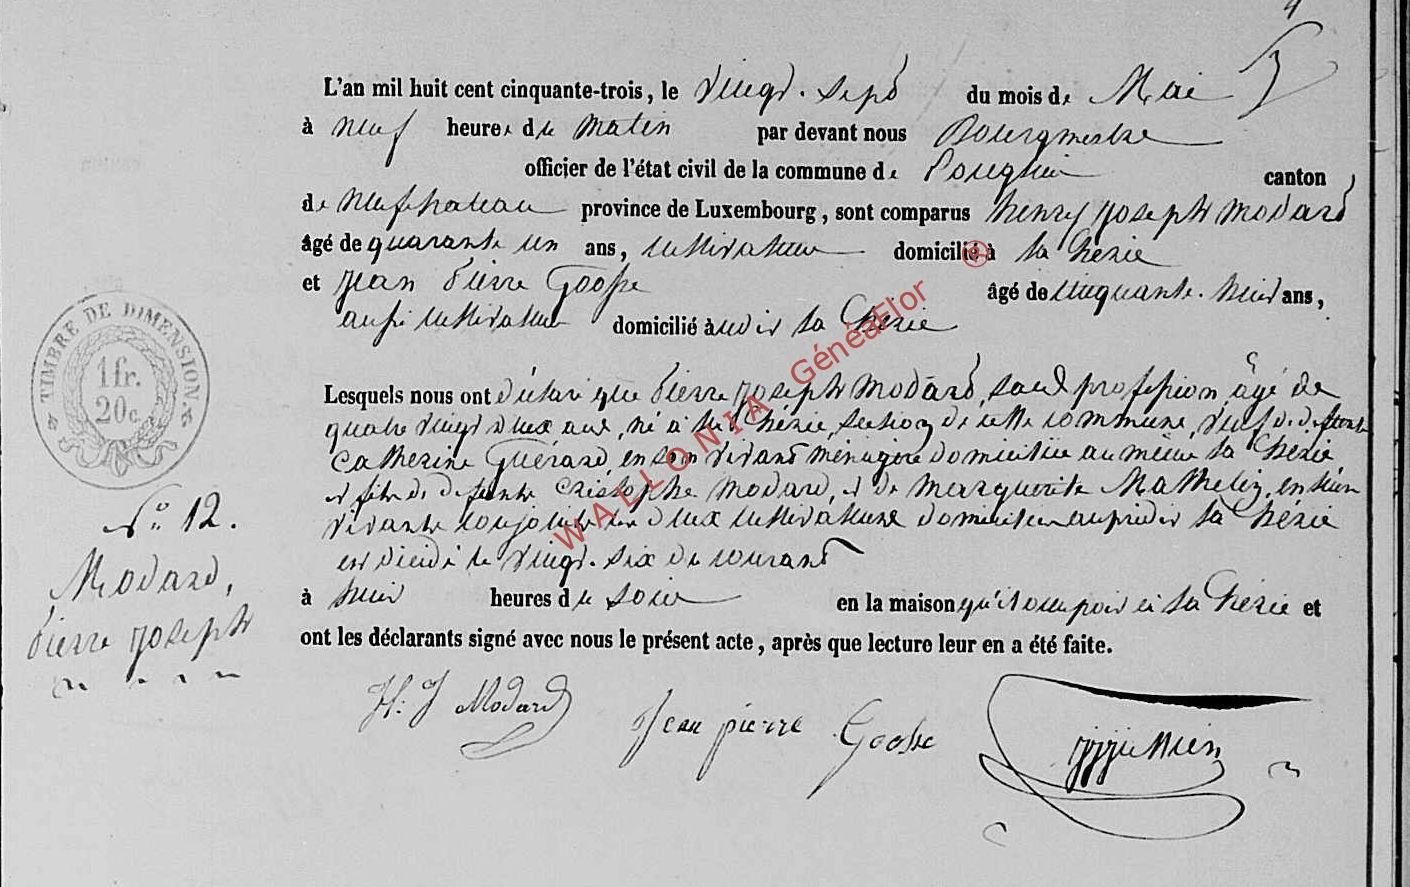 L'an mil huit cent cinquante-trois, le vingt-sept du mois de Mai
à neuf heures du matin par devant nous Bourgmestre
officier de l'état civil de la commune de canton
de neufchateau province de Luxembourg, sont comparus henry joseph modard
âgé de quarante un ans, cultivateur domicilié à la hérie
et jean Pierre Goosse âgé de cinquante-huit ans,
aussi cultivateur domicilié à la hérie
Lesquels nous ont déclaré que Pierre joseph modard, sans profession âgé de
quatre vingt deux ans, né à la hérie, section de cette commune, veuf de défunte
Catherine Guérard, en son vivant ménagère domiciliée au même la hérie
et fils de défunts Cristophe modard, et de marguerite Mathelin, en leur
vivant conjoints tous deux cultivateurs domiciliés la hérie
est décédé le vingt-six du courant
à huit heures du soir en la maison qu'il occupoit à la hérie et
ont les déclarants signé avec nous le présent acte, après que lecture leur en a été faite.
H: J Modard
Jean pierre Goosse
TIMBRE DE DIMENSION
1 fr.
20 c.
N° 12.
Modard,
Pierre joseph
WALLONIA GénéaFlor ®